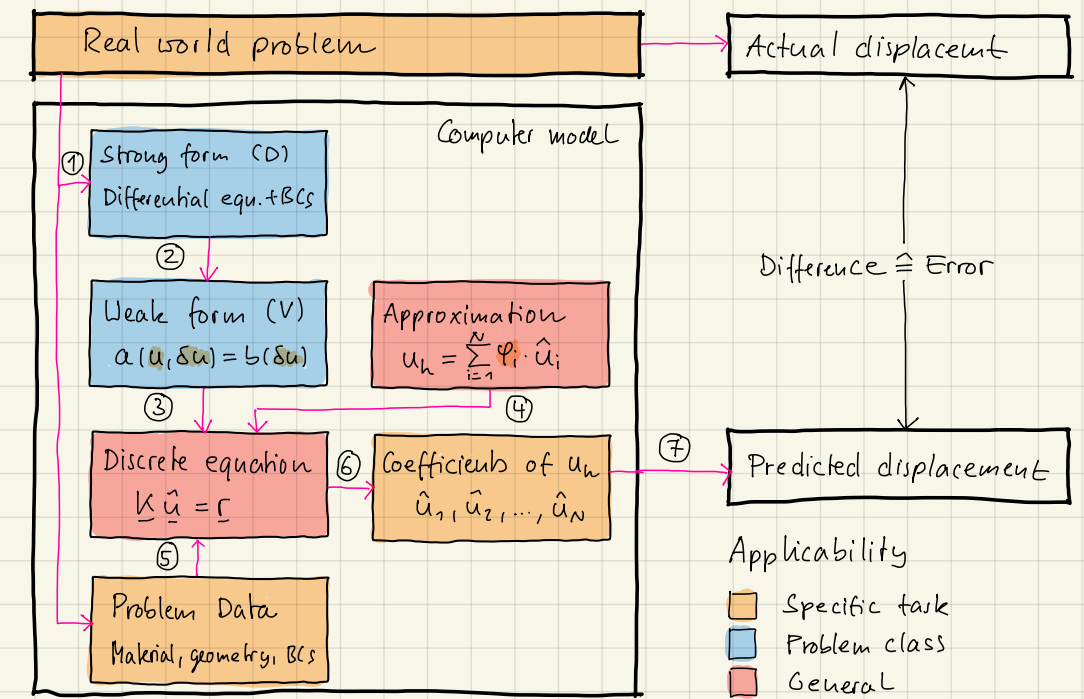 Real world problem
Actual displacemt
Computer model
①
Strong form (D)
Differential equ.+BCs
②
Difference ≙ Error
Weak form (V)
a(u,δu) = b(δu)
Approximation
u_h = ∑_{i=1}^{N} φ_i · û_i
③
④
Discrete equation
K û = r
⑥
Coefficients of u_h
û_1, û_2, ..., û_N
⑦
Predicted displacement
⑤
Problem Data
Material, geometry, BCs
Applicability
Specific task
Problem class
General